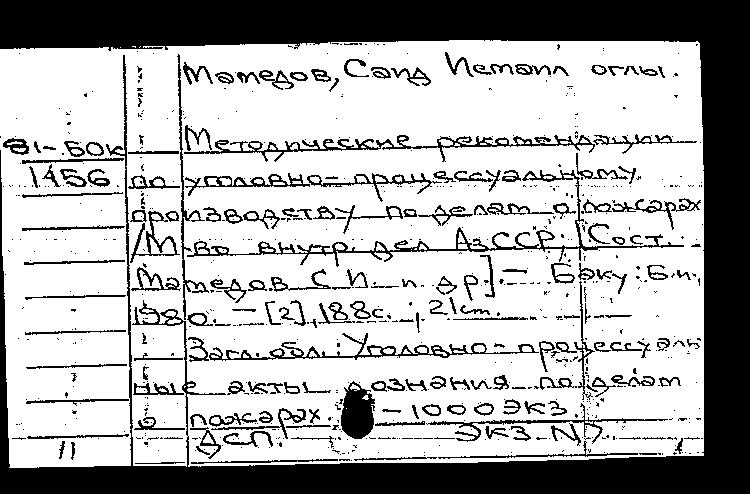 Мамедов, Саид Исмаил оглы.
81-БОК Методические рекомендации
1456 по уголовно-процессуальному
производству по делам о пожарах
/М-во внутр. дел АзССР; [Сост.
Мамедов С.И. и др.].— Баку: Б.и.,
1980. — [2], 188с. ; 21см.
Загл. обл.: Уголовно-процессуаль
ные акты дознания по делам
о пожарах. —1000 экз.
11 ДСП. экз. N